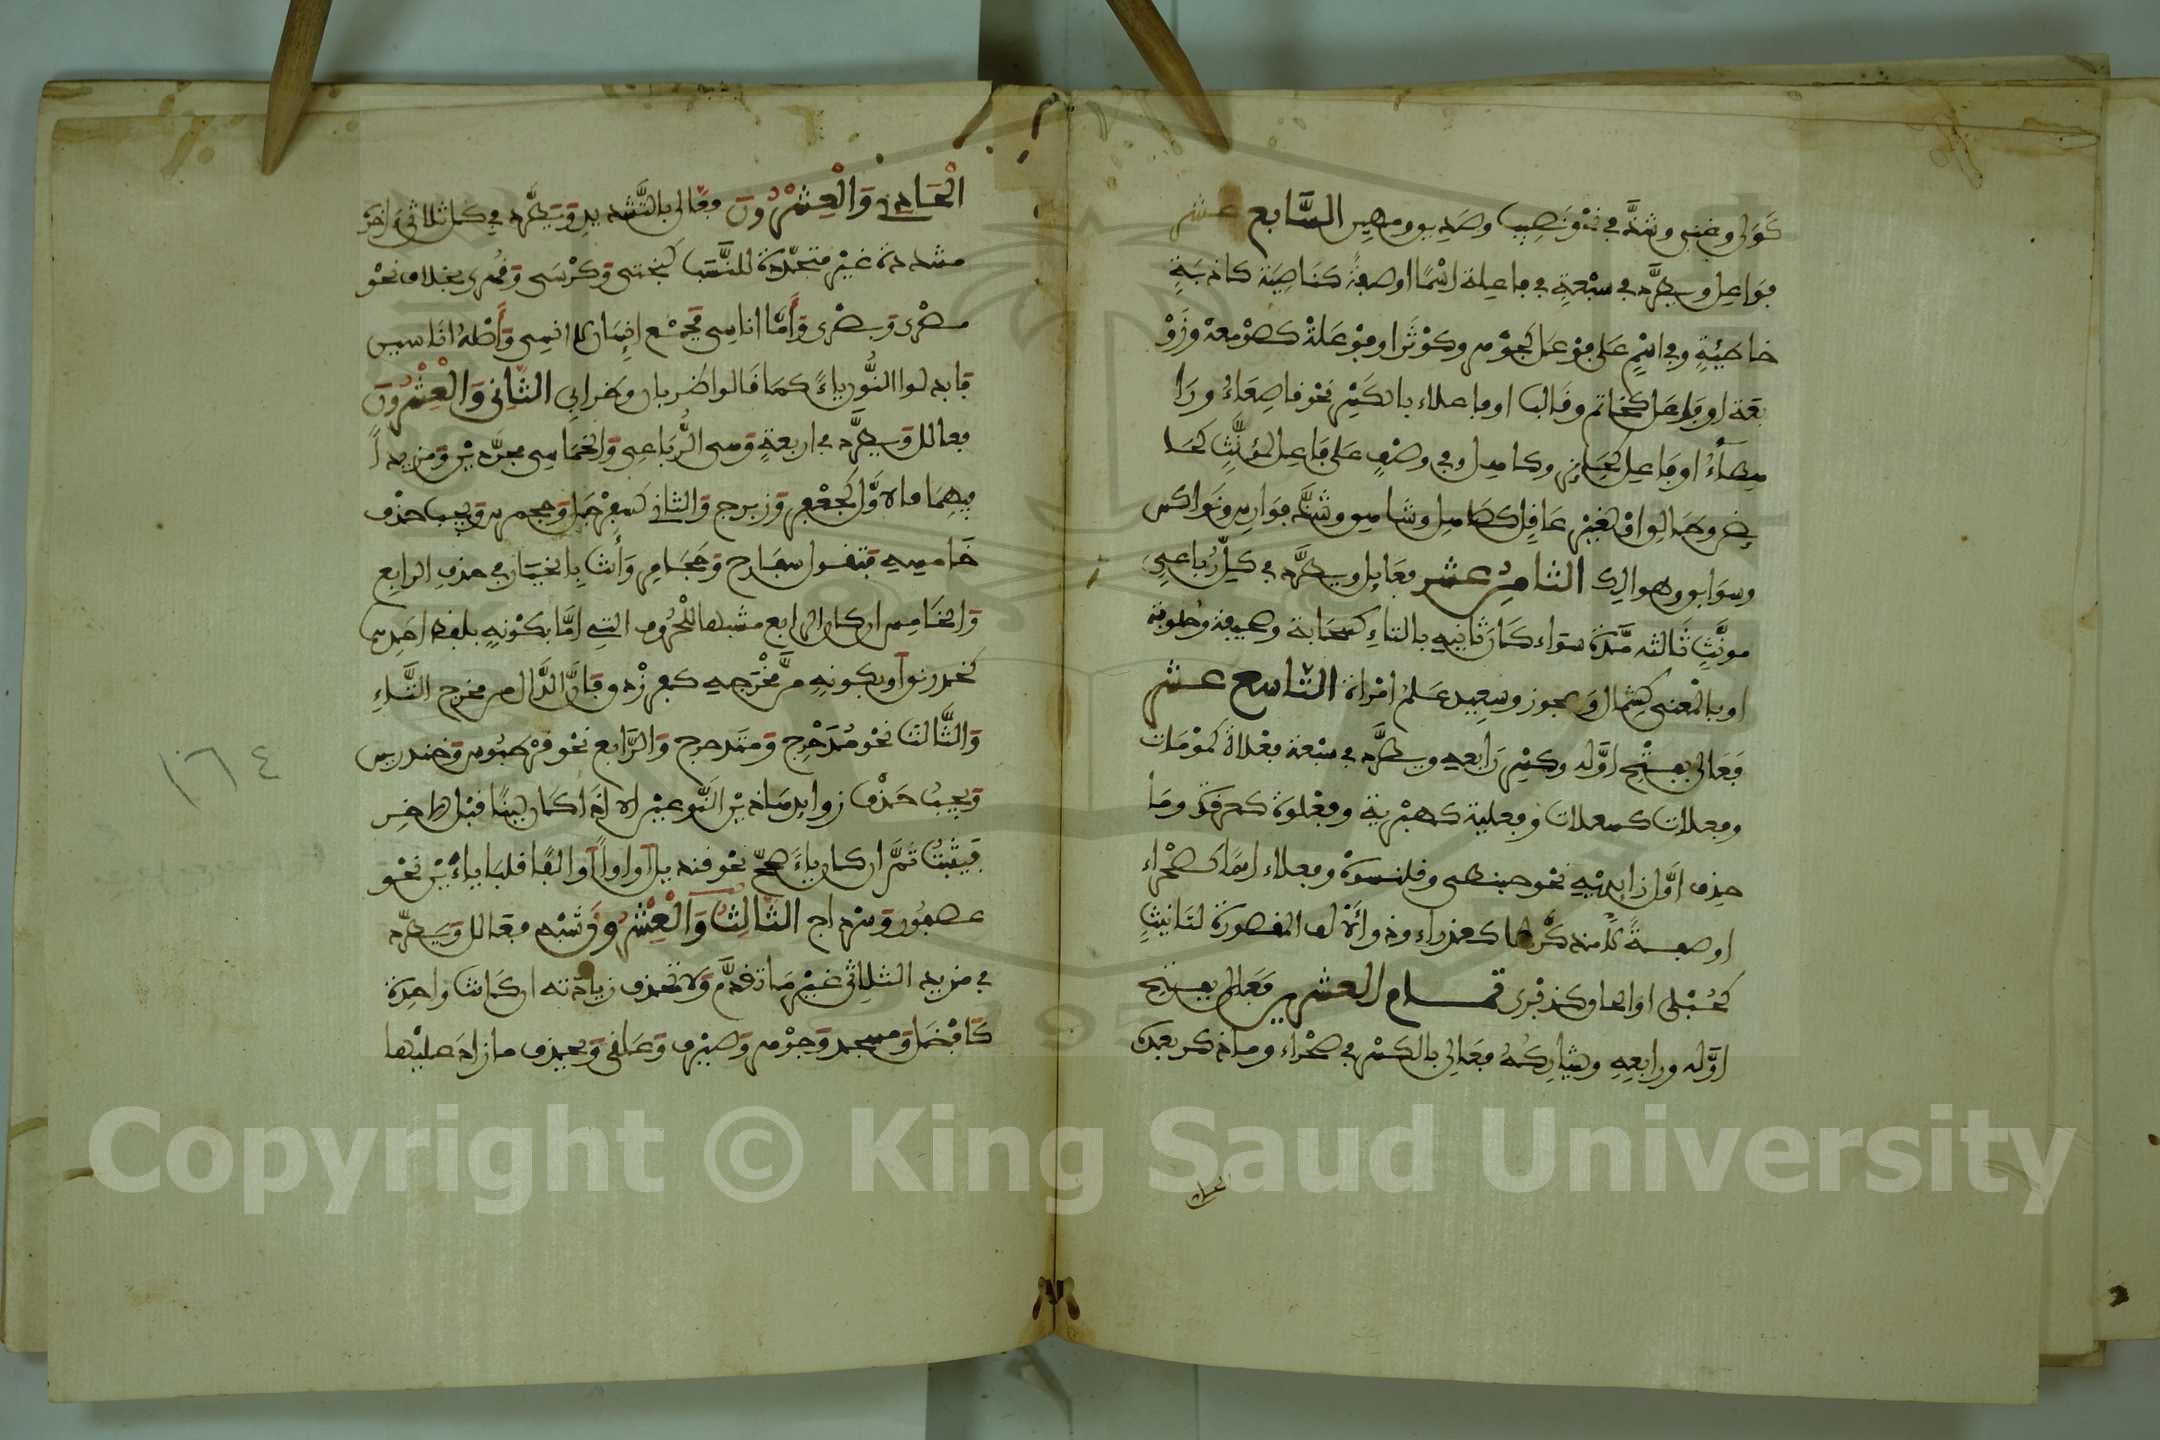 كَوَلى وغنى وشذَّ في نحْو نَصِيب وصَديق وهيِن السَّابع عشر
فواعِل ويطَّرد في سبْعةٍ في فاعِلة اسْمًا او صفةً كنَاصِيَة كاذبَةٍ
خاطئةٍ وفي اسْمٍ عَلى فوْعَل كجوْهر وكوْثَر او فوْعَلة كصوْمعة وزَوْ
بَعَة او فاعَل كخاتم وقالب او فاعلاء بالكَسْر نحو قاصِعَاء ورَا
هِطَاءَ او فاعِل كجَائز وكاهِل وفي وصْفٍ عَلى فَاعِل لمُؤنَّثٍ كحَا
ئض وطَالِق او لغيْر عَاقِل كصَاهِل وشاهق وشذَّ فوارِس ونَواكس
وسَوابق وهوالِك الثامِن عشر فعَائِل ويطَّرد في كلِّ رُباعىٍّ
مونَّثٍ ثَالثه مَدَّة سَواء كَان تانيثه بالتاءِ كسَحَابة وصحيفة وحلوبة
او بالْمعنى كشِمال وعجوز وسعِيد علمُ امْراة التَّاسع عشر
فَعَالى بفتْح اوَّله وكسْر رَابعه ويطَّرد في سبْعة فعْلاة كموْمَات
وفعلات كسعلات وفعلية كهبْرية وفعْلوَة كعرقوَة ومَا
حذف اوَّل زايديْه نحو حبنطى وقلنسوَة وفعلاء اسمًا كصحْراء
او صفةً لا مذكَّر لها كعذراء وذو الالف المقصورَة لتَانيثٍ
كحُبْلى او الحاق كذفْرى تمام العشرين فَعَالى بفتح
اوَّله ورابعِهِ ويشارِكُهُ فعَالِى بالكسْر في صحْراء وما ذكر بعده
الحـ
الْحَادي وَالْعِشْرُون فعَالى بالتَّشديدِ ويَطَّرد في كل ثلاثى آخره
مشددة غيْر متجدِّدة للنَّسَب كبختى وَكرْسَى وَقمْرى بخلاف نحْو
مصْرى وَبصْرى وَأمَّا اناسِى فجمْع إنسَان لا انسى وَأصْلهُ انَاسين
فابدلوا النُّون ياءً كمَا قالوا ظربان وَظرابى الثَّانى وَالْعِشْرُون
فعالل وَيطَّرد في اربعةٍ وَهى الرُّبَاعى وَالخمَاسِى مجرَّديْن وَمزيداً
فيهِمَا فالاوَّل كجَعْفر وَزبرج وَالثاني كسفرْجَل وَجحمرش وَيجب حذْف
خَامسِه فتقول سفارج وَجَحَامِر وَأنت بالخيَار في حذفِ الرابع
وَالخَامس ان كان الرابع مشبها للحُروف التى امَّا بكوْنهِ بلفظ احَدِها
كخدرنق أو بكونهِ من مخْرَجهِ كفرزْدق فانَّ الدَّال من مخرج التَّاءِ
وَالثَّالث نحْو مُدَحْرِج وَمتدحرج وَالرَّابع نحْو قرْطبُوس وَخندريس
وَيجبُ حَذْف زوايد هَاذيْن النَّوعيْن الا اذَا كَان لينًا قبْل الآخِر
فيثبتُ ثمَّ ان كان ياءً صحَّ نحْو قنديل أو واواً أو الفًا قلبَا ياءَيْن نحْو
عصفُور وَسرداح الثَّالِثُ وَالْعِشْرُون شبْه فعَالل وَيطرد
في مزيد الثلاثى غيْر مَا تقدَّم وَلا تحذف زيادَته ان كَانت واحِدَة
كَافْضَل وَمسجد وَجوْهر وَصيْرف وَعَلقى وَيحذف مَا زادَ عليْها
١٦٤